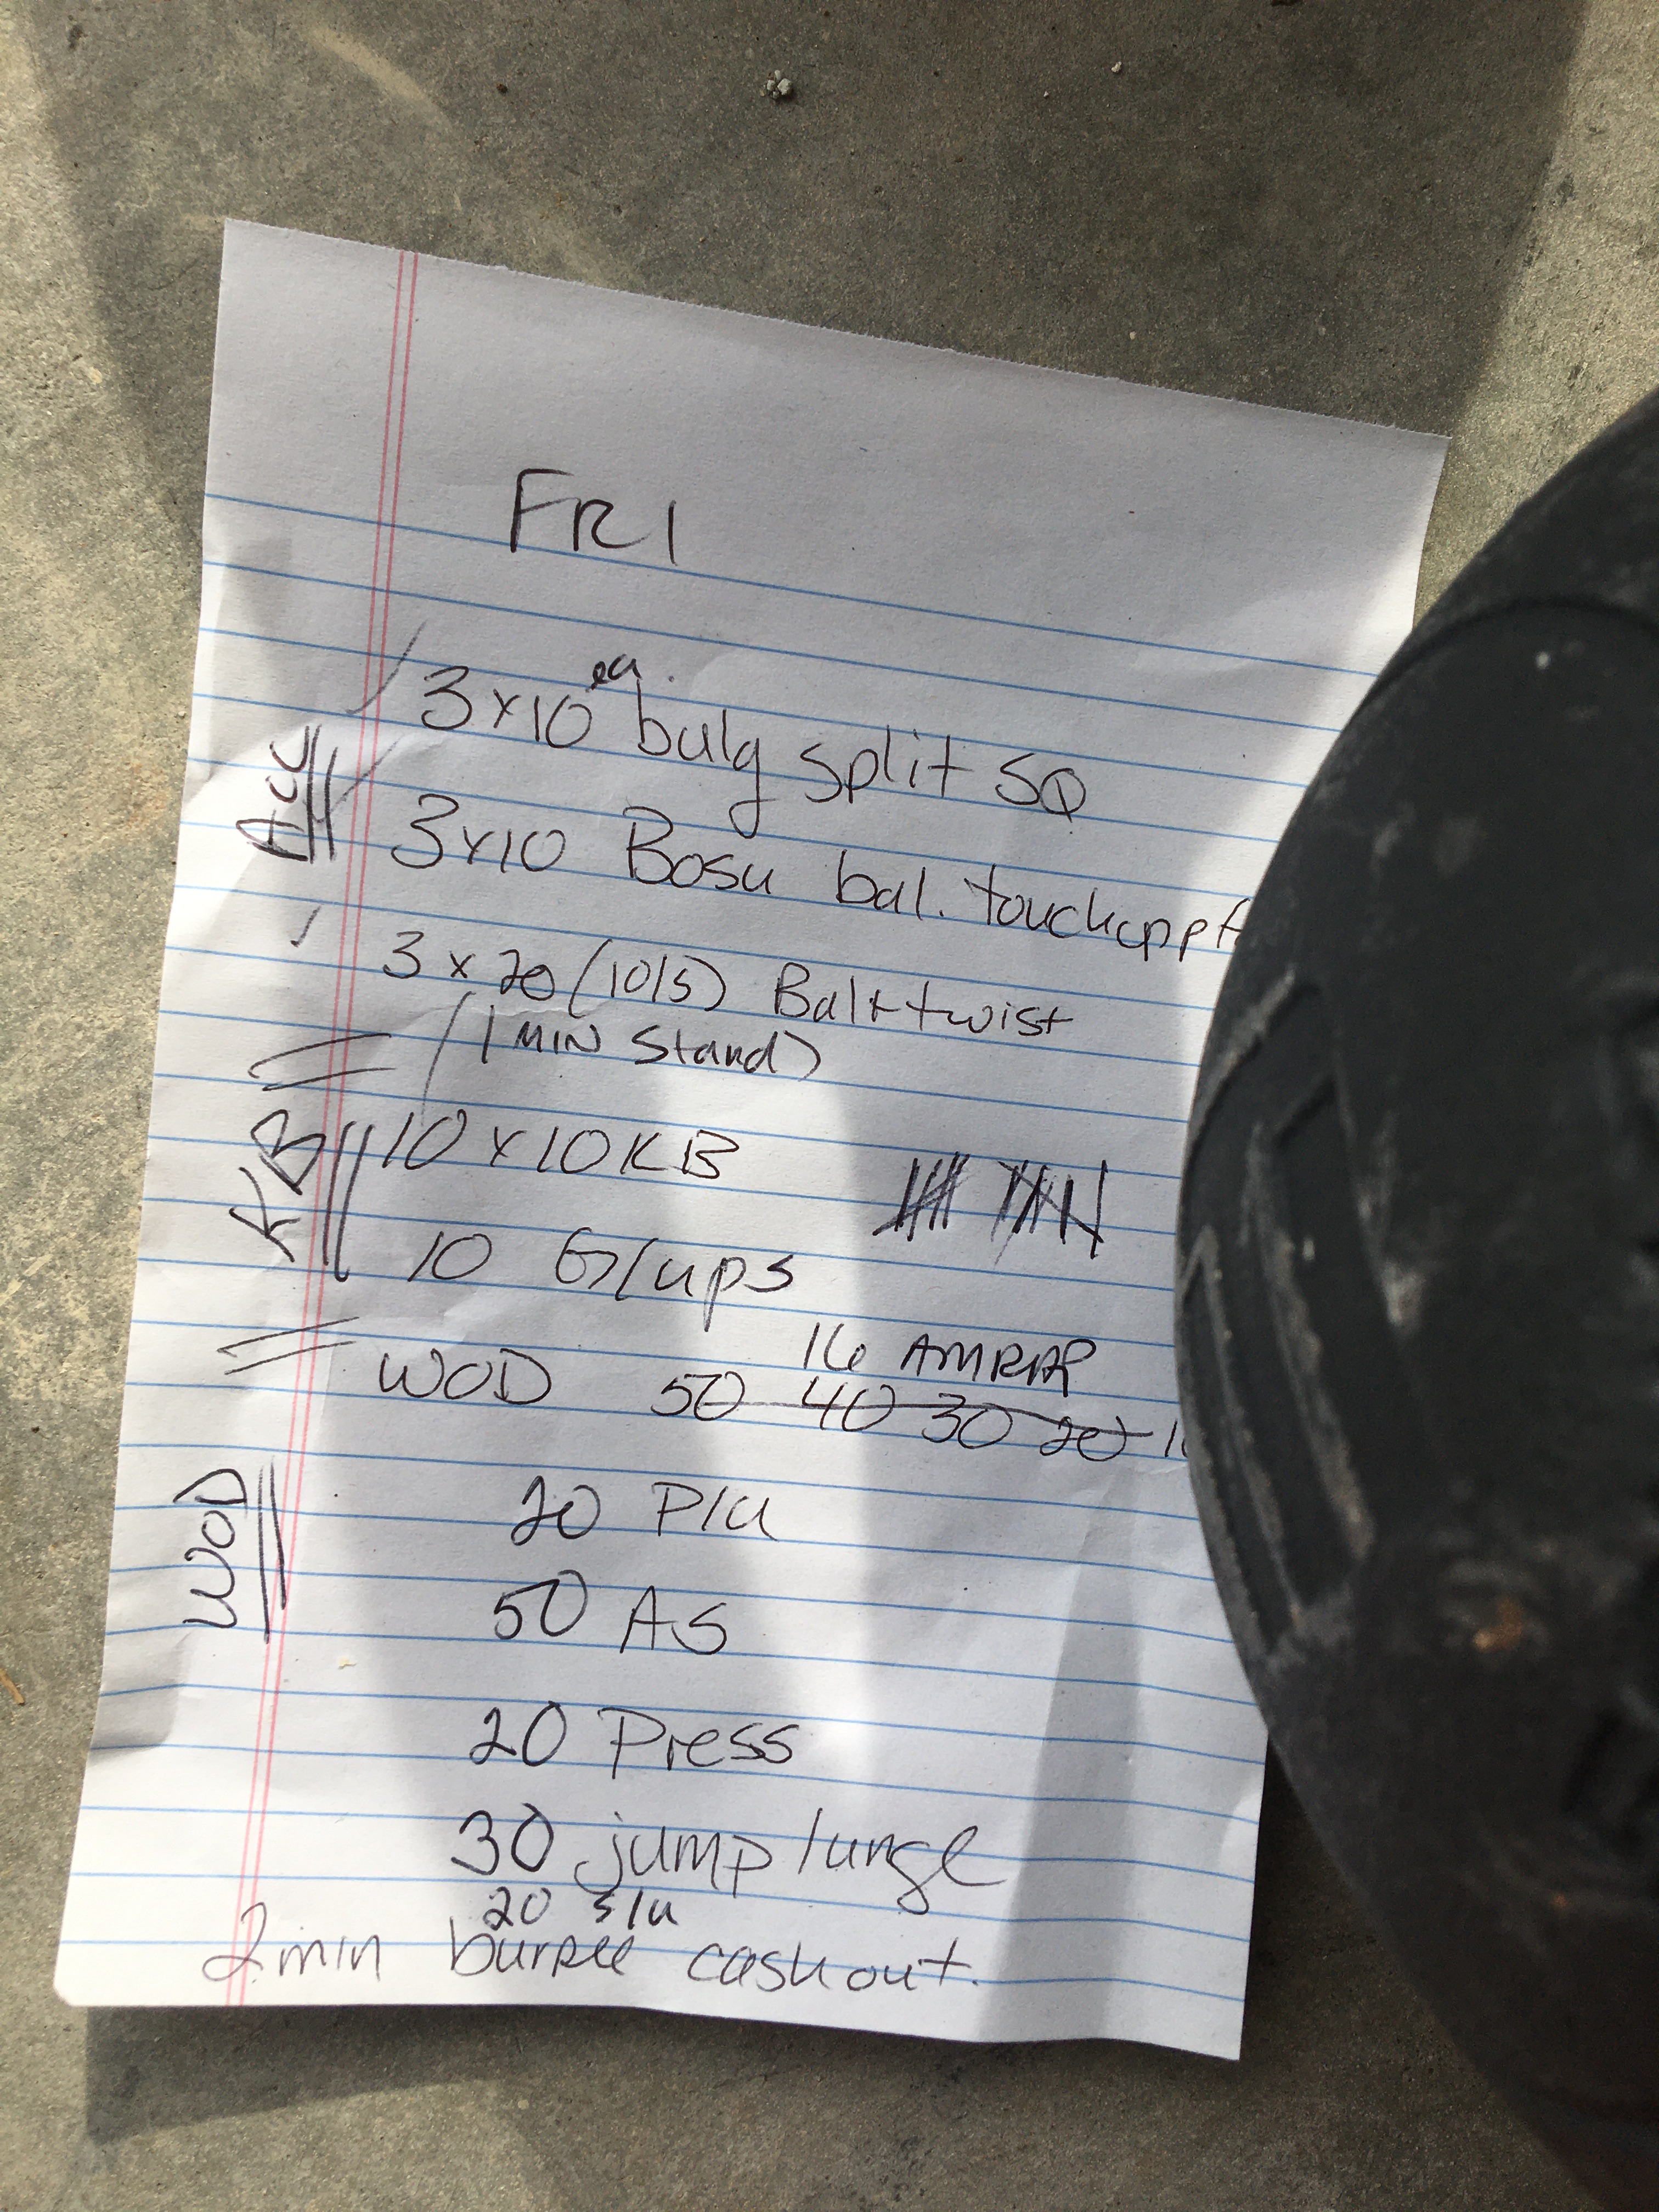 FRI
3x10 ea. bulg split SQ
Acc
3x10 Bosu bal.
3 x 20 (10/5) Bal + twist
(1 MIN Stand)
KB
10 x 10 KB
10 G/ups
16 AMRAP
WOD 50 40 30 20
WOD
20 P/u
50 AS
20 Press
30 jump lunge
20 s/u
2 min burpee cash out.